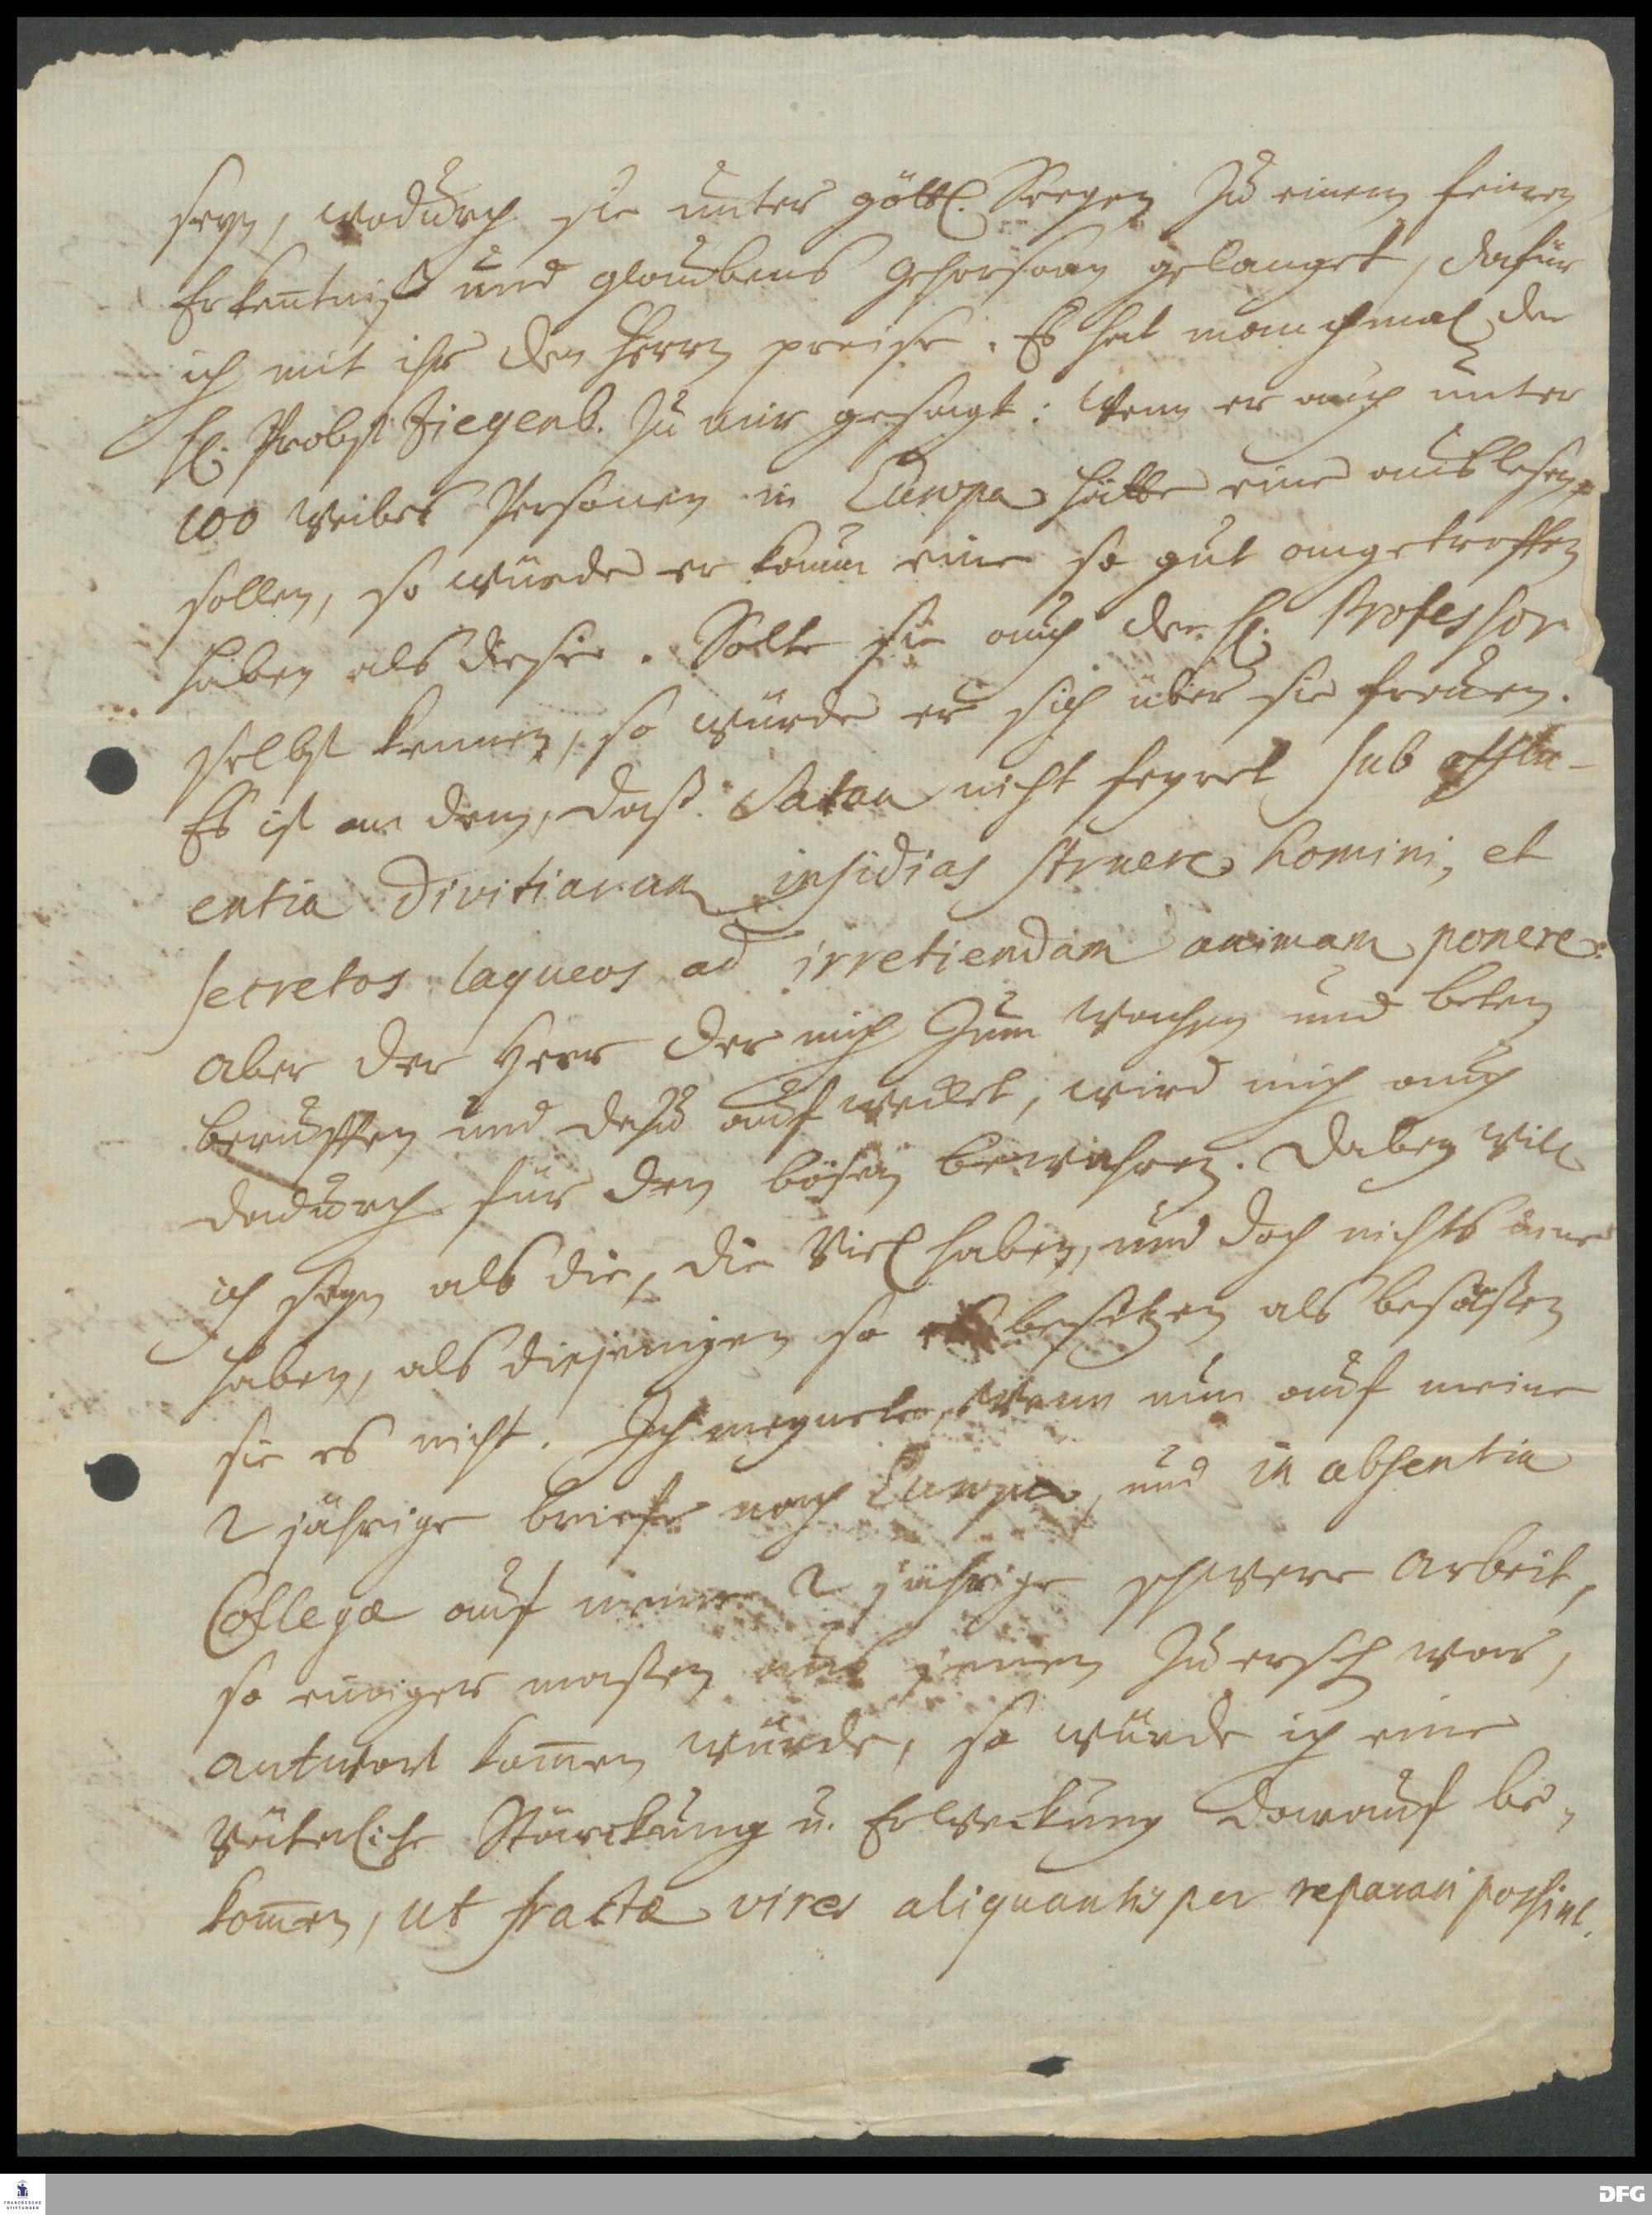 seyn, wodurch sie unter göttl. Seegen zu einem feinen
Erkentniß und glaubens gehorsam gelanget, dafür
ich mit ihr den Herrn preise. Es hat manchmal der
H. Probst Ziegenb. zu mir gesagt: Wenn er auch unter
100 Weibes Personen in Europa hätte eine auslesen
sollen, so würde er kaum eine so gut angetroffen
haben als diese. Solte sie auch der H. Professor
selbst kennen, so würde er sich über sie freuen.
Es ist an dem, daß Satan nicht feyret sub afflu-
entia divitiarum insidias struere homini, et
secretos laqueos ad irretiendam animam ponere.
aber der Herr der mich zum wachen und beten
beruffen und dazu aufwecket, wird mich auch
dadurch für den bösen bewahren. Dabey will
ich seyn als die, die Viel haben, und doch nichts inne
haben, als diejenigen so es besitzen als besäßen
sie es nicht. Ich meynete, Wenn nun auf meine
2 jährige briefe nach Europa, und in absentia
Collegæ auf meine 2 jährige schwere arbeit,
so einiger maßen aus jenen zu ersch war,
antwort kom̄en würde, so würde ich eine
Väterliche Stärckung u. Erweckung darauf be-
kom̄en, ut fractæ vires aliquantisper reparari possint.
FRANCKESCHE
STIFTUNGEN
DFG